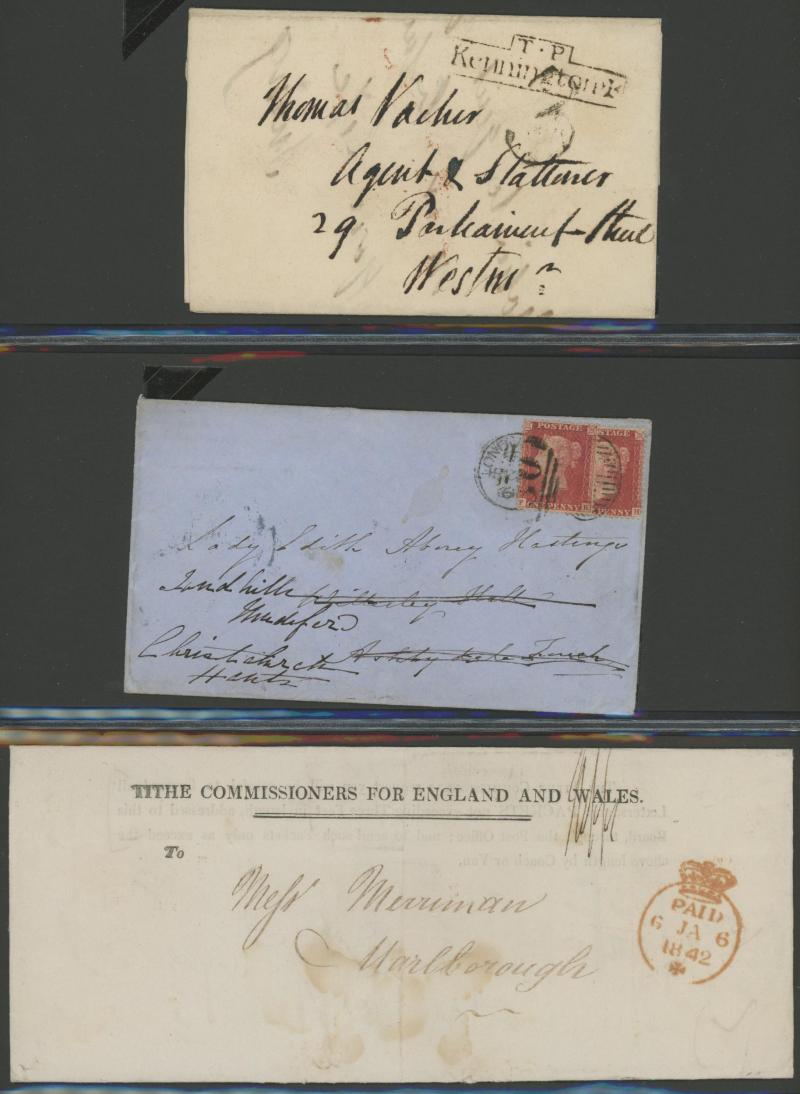 T·P
Kennington
Thomas Vacher
Agent & Stationer
29 Parliament Street
Westmr
POSTAGE
ONE PENNY
PENNY
LONDON
Lady Edith Abney Hastings
Willesley Hall
Mudeford
Christchurch Ashby de la Zouch
Hants
TITHE COMMISSIONERS FOR ENGLAND AND WALES.
To
Messrs Merriman
Marlborough
PAID
6 JA 6
1842